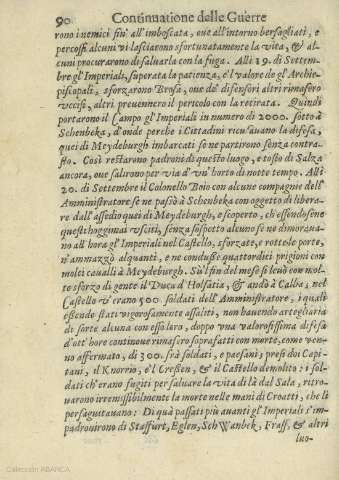 90 Continuatione delle Guerre
rono i nemici fin' all'imboscata, oue all'intorno bersagliati, e
percossi alcuni vi lasciarono sfortunatamente la vita, & al-
cuni procurarono di saluarla con la fuga. Alli 19. di Settem-
bre gl'Imperiali, superata la patienza, e'l valore de gl'Archie-
piscopali, sforzarono Brosa, oue de' difensori altri rimasero
vccisi, altri preuennero il pericolo con la retirata. Quindi
portarono il Campo gl'Imperiali in numero di 2000. sotto à
Schenbeka, d'onde perche i Cittadini ricusauano la difesa,
quei di Meydeburgh imbarcati se ne partirono senza contra-
sto. Così restarono padroni di questo luogo, e tosto di Salza
ancora, oue salirono per via d'vn'horto di notte tempo. Alli
20. di Settembre il Colonello Boio con alcune compagnie dell'
Amministratore se ne passò à Schenbeka con oggetto di libera-
re dall'assedio quei di Meydeburgh, e scoperto, che essendosene
questi hoggimai vsciti, senza sospetto alcuno se ne dimoraua-
no all'hora gl'Imperiali nel Castello, sforzate, e rotte le porte,
n'ammazzò alquanti, e ne condusse quattordici prigioni con
molti caualli à Meydeburgh. Sù'l fin del mese si leuò con mol-
to sforzo di gente il Duca d'Holsatia, & andò à Calba; nel
Castello v'erano 500. soldati dell'Amministratore, i quali
essendo stati vigorosamente assaliti, non hauendo artegliaria
di sorte alcuna con esso loro, doppo vna valorosissima difesa
d'ott'hore continoue rimasero soprafatti con morte, come ven-
ne affermato, di 300. frà soldati, e paesani, presi doi Capi-
tani, il Knorrio, e'l Cressen, & il Castello demolito: i sol-
dati ch'erano fugiti per saluare la vita di là dal Sala, ritro-
uarono irremissibilmente la morte nelle mani di Croatti, che li
perseguitauano: Di quà passati più auanti gl'Imperiali s'im-
padronirono di Stassfurt, Eglen, SchWanbek, Frass, & altri
luo-
Colección ABANCA